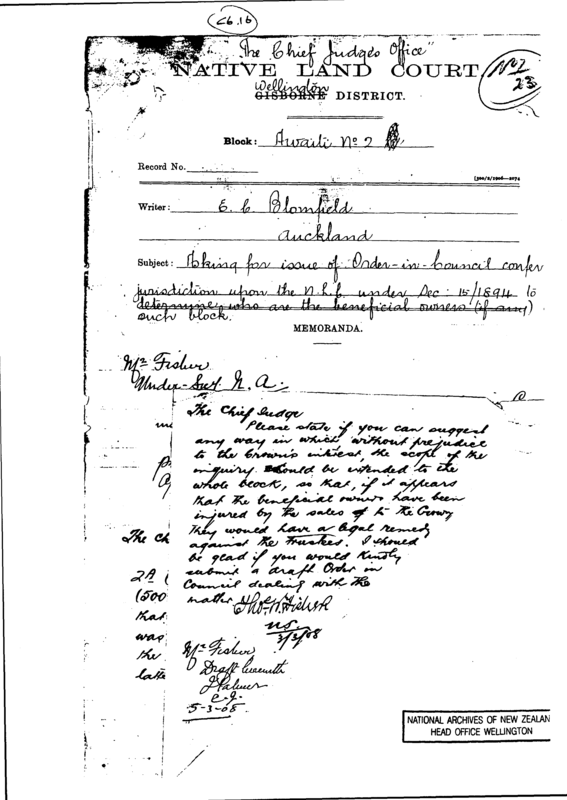 C6.16
"The Chief Judges Office"
NATIVE LAND COURT,
No 2
23
Wellington
GISBORNE DISTRICT.
Block: Awaiti No 2
Record No.
[500/2/1906—2074
Writer: E. C. Blomfield
Auckland
Subject: Asking for issue of Order-in-Council confer
jurisdiction upon the N.L.C. under Sec: 15/1894 to
determine who are the beneficial owners (if any)
such block.
MEMORANDA.
Mr Fisher
Under-Secy N. A.
The Chief Judge
Please state if you can suggest
any way in which, without prejudice
to the Crown's interest, the scope of the
inquiry should be extended to the
whole block, so that, if it appears
that the beneficial owners have been
injured by the sales to the Crown
they would have a legal remedy
against the Trustees. I should
be glad if you would kindly
submit a draft Order in
Council dealing with the
matter
Thos W Fisher
U.S.
3/3/08
The Ch
2A (
(500
that
was
the
late
Mr Fisher
Draft herewith
J Palmer
C.J.
5-3-08.
NATIONAL ARCHIVES OF NEW ZEALAN
HEAD OFFICE WELLINGTON